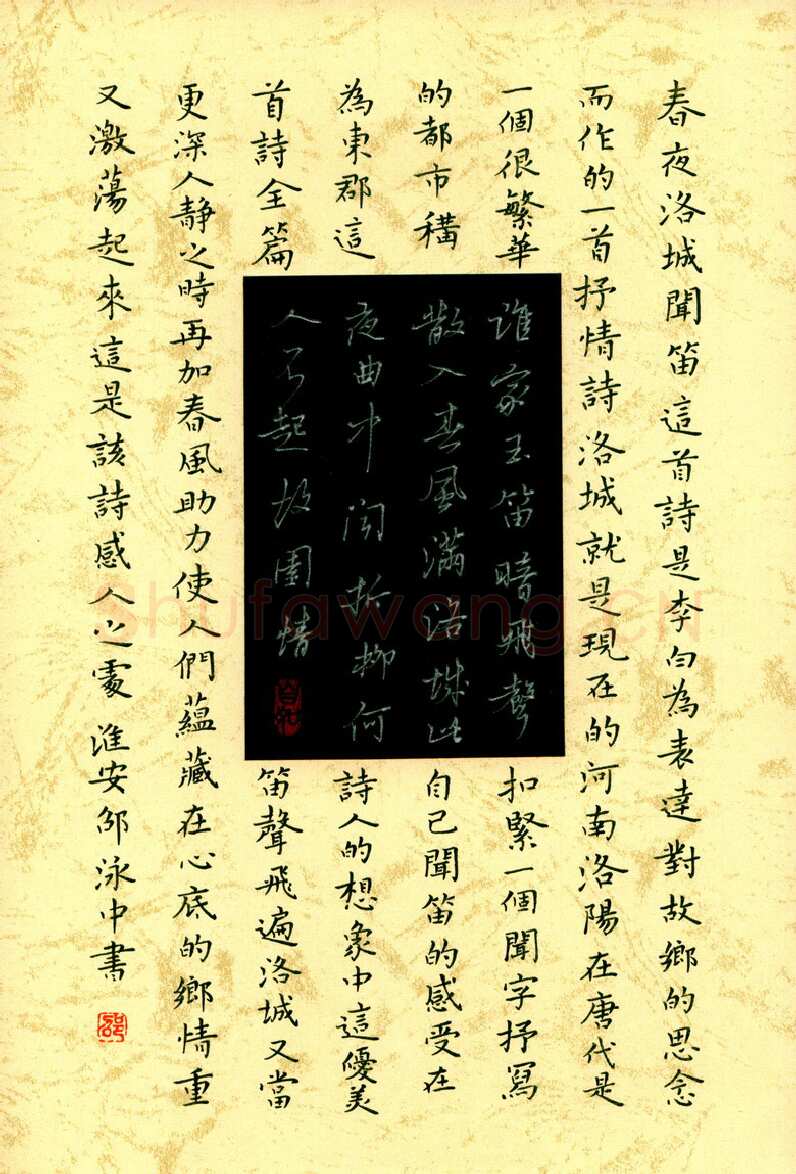 春夜洛城聞笛這首詩是李白為表達對故鄉的思念
而作的一首抒情詩洛城就是現在的河南洛陽在唐代是
一個很繁華
的都市稱
為東郡這
首詩全篇
扣緊一個聞字抒寫
自己聞笛的感受在
詩人的想象中這優美
笛聲飛遍洛城又當
更深人靜之時再加春風助力使人們蘊藏在心底的鄉情重
又激蕩起來這是該詩感人之處淮安邵泳中書
邵
誰家玉笛暗飛聲
散入春風滿洛城此
夜曲中聞折柳何
人不起故園情
shufawang.cn